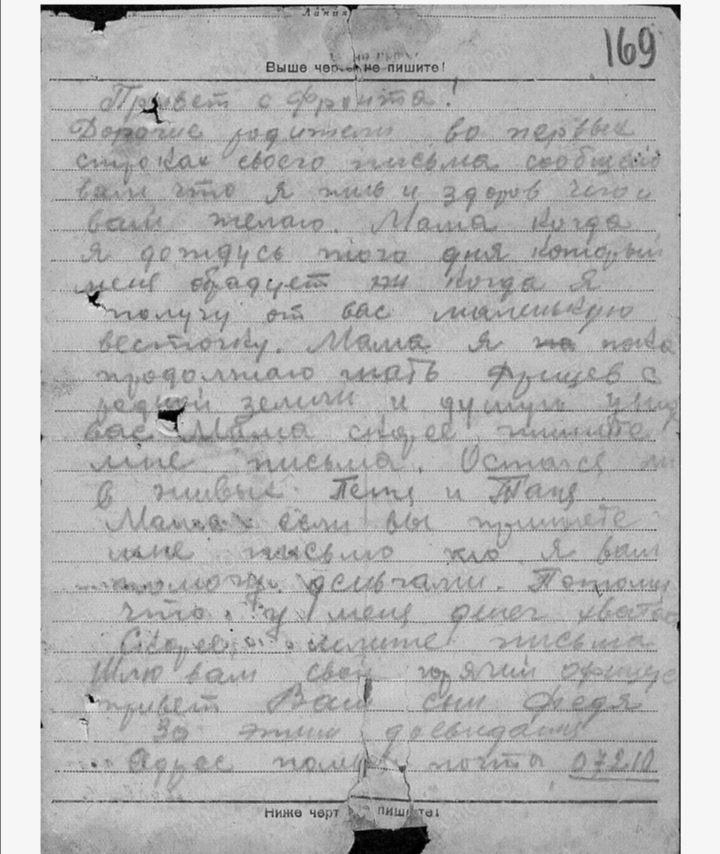 Линия
169
Выше черты не пишите!
Привет с фронта!
Дорогие родители во первых
строках своего письма сообщаю
вам что я жив и здоров чего и
вам желаю. Мама когда
я дождусь того дня который
меня обрадует когда я
получу от вас маленькую
весточку. Мама я на пока
продолжаю гнать фрицев с
родной земли и думаю
вас Мама скорее пишите
мне письма. Остался ли
в живых Петя и Таня
Мама если вы пришлете
мне письмо то я вам
помогу деньгами. Потому
что у меня денег хватает
Скорее письма
Шлю вам свой горячий
привет Ваш сын Федя
За этим досвидания
Адрес полев почта 07210
Ниже черты не пишите!